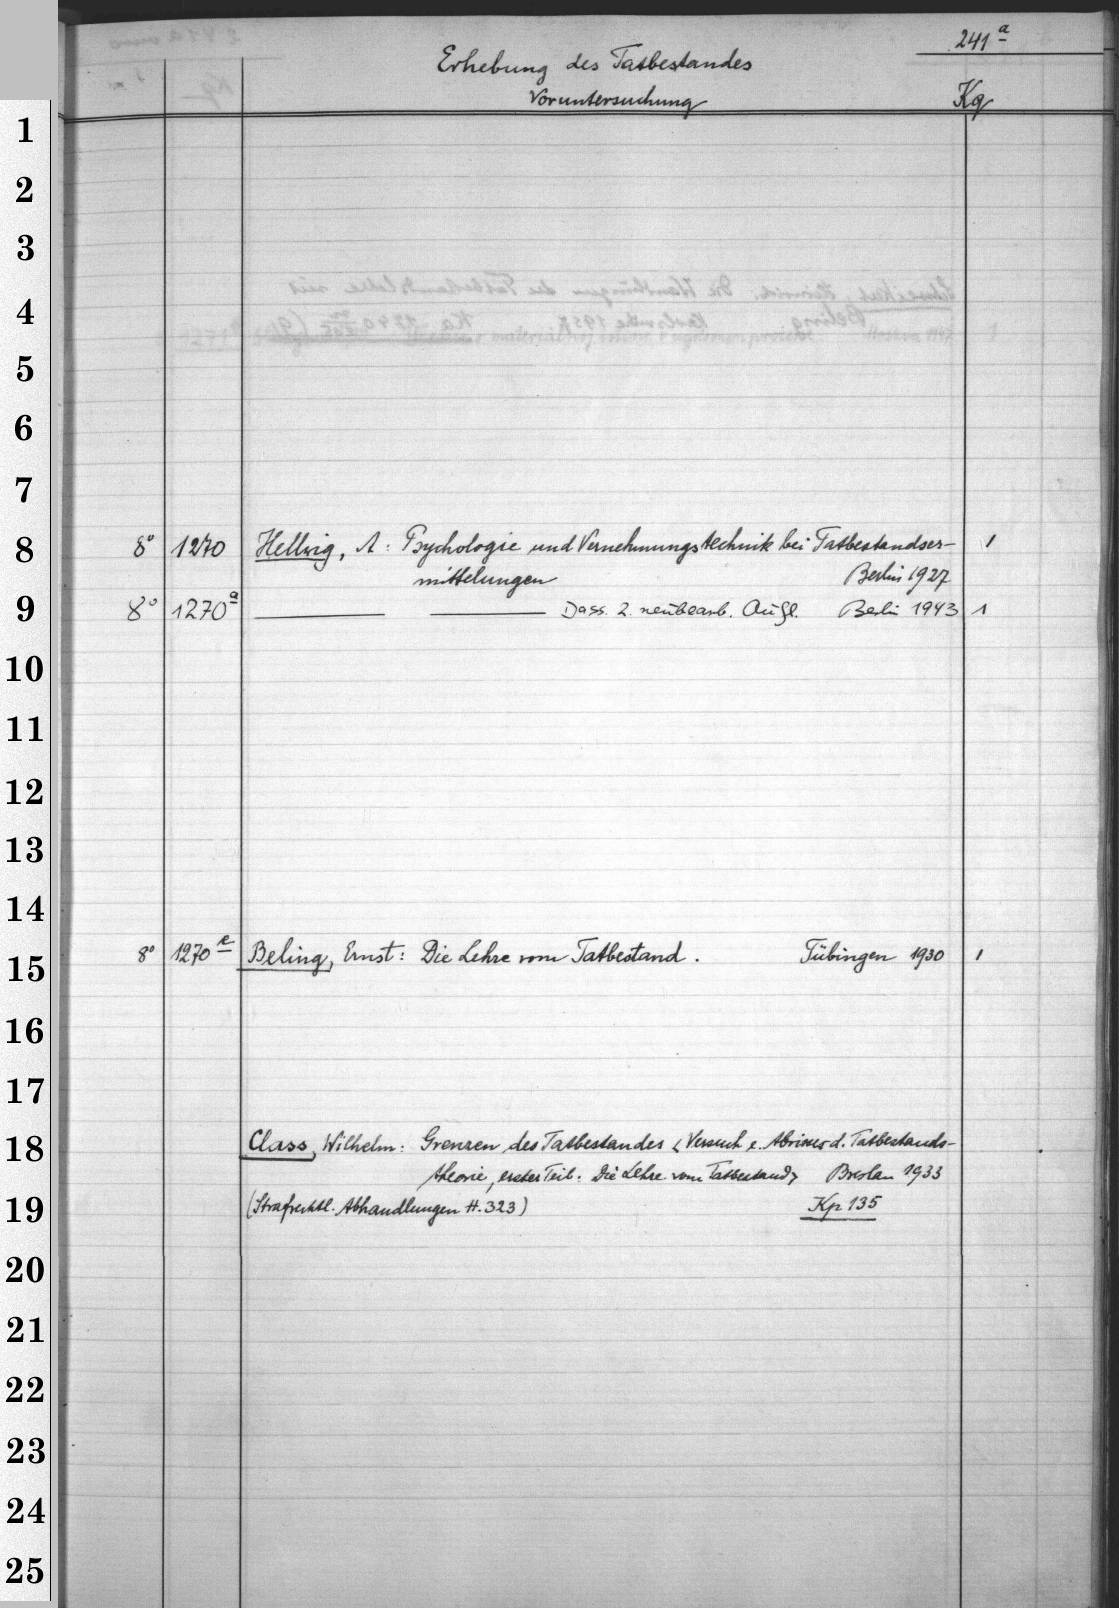 241a
Erhebung des Tatbestandes
Voruntersuchung Kg
1
2
3
4
5
6
7
8 8° 1270 Hellwig, A: Psychologie und Vernehmungstechnik bei Tatbestandser- 1
mittelungen Berlin 1927
9 8° 1270a Dass. 2. neubearb. Aufl. Berlin 1943 1
10
11
12
13
14
15 8° 1270e Beling, Ernst: Die Lehre vom Tatbestand. Tübingen 1930 1
16
17
18 Class, Wilhelm: Grenzen des Tatbestandes < Versuch e. Abrisses d. Tatbestands-
theorie, erster Teil: Die Lehre vom Tatbestand> Breslau 1933
19 (Strafrechtl. Abhandlungen H. 323) Kp 135
20
21
22
23
24
25